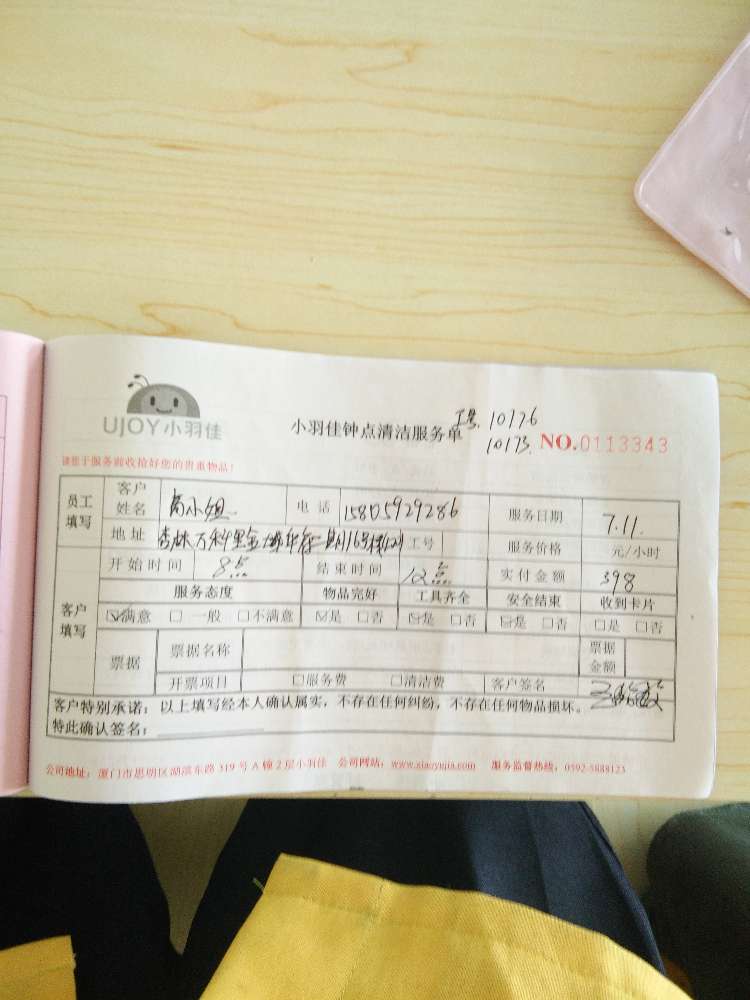 UJOY小羽佳
小羽佳钟点清洁服务单
工号. 10176
10173
NO.0113343
请您于服务前收拾好您的贵重物品！
员工填写
客户姓名 小姐 电话 15805929286 服务日期 7.11.
地址 杏林万科 工号 服务价格 元/小时
客户填写
开始时间 8点 结束时间 12点 实付金额 398
服务态度 物品完好 工具齐全 安全结束 收到卡片
☑满意 □一般 □不满意 ☑是 □否 ☑是 □否 ☑是 □否 □是 □否
票据 票据名称 票据金额
开票项目 □服务费 □清洁费 客户签名
客户特别承诺：以上填写经本人确认属实，不存在任何纠纷，不存在任何物品损坏。
特此确认签名：
公司地址：厦门市思明区湖滨东路319号A幢2层小羽佳 公司网站：www.xiaoyujia.com 服务监督热线：0592-5888123